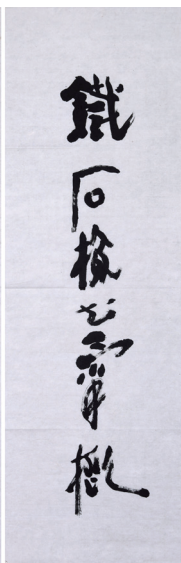 鐵石梅花氣概